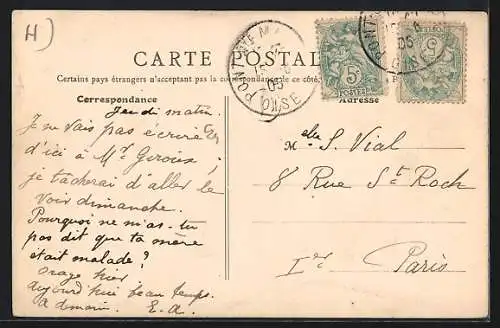 H)
CARTE POSTALE
Certains pays étrangers n'acceptent pas la correspondance de ce côté
Correspondance
Adresse
Jeudi matin.
Je ne vais pas écrire
d'ici à Mr
je tâcherai d'aller le
voir dimanche.
Pourquoi ne m'as-tu
pas dit que ta mère
était malade?
Orage hier
aujourd'hui beau temps.
a demain. E.A.
Melle S. Vial
8 Rue St Roch
Ier Paris
5c
05
OISE
05